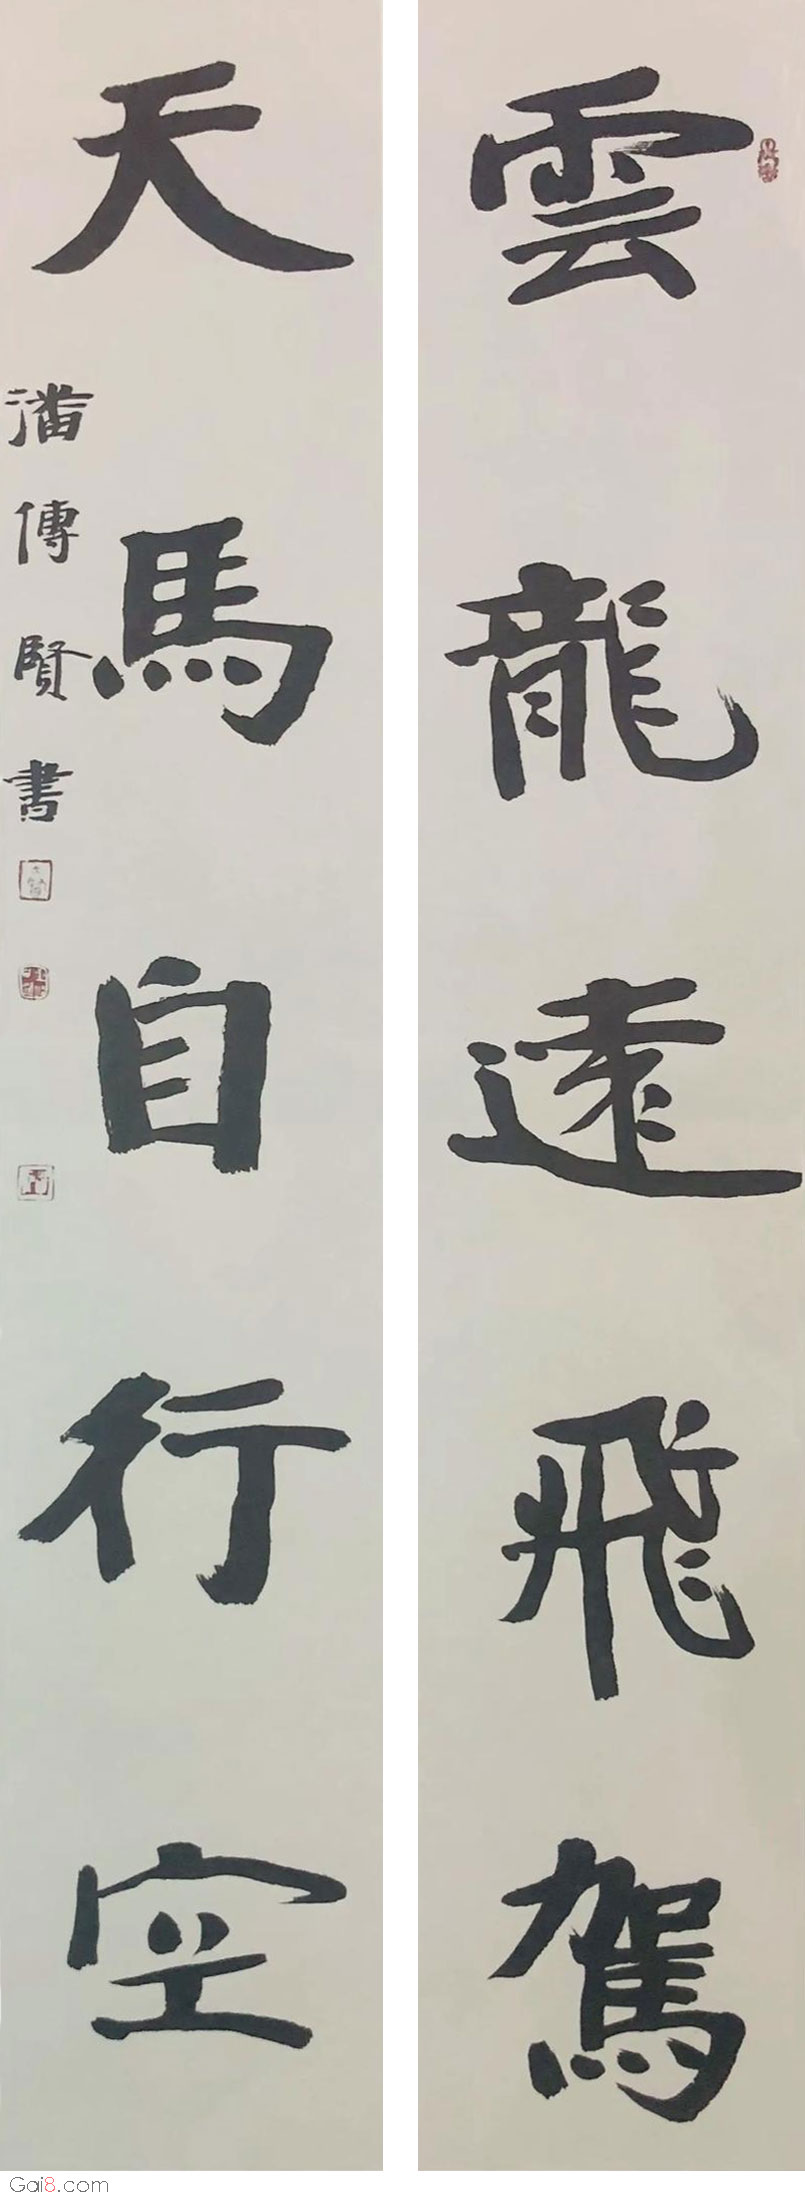 雲龍遠飛駕
天馬自行空
潘傳賢書
Gai8.com